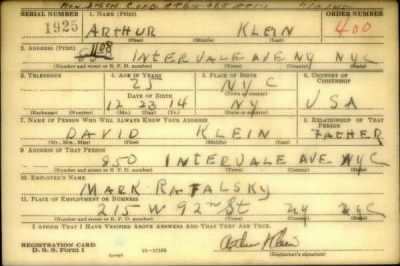 SERIAL NUMBER 1. NAME (Print) ORDER NUMBER
1925 ARTHUR KLEIN 400
(First) (Middle) (Last)
2. ADDRESS (Print)
1108
INTERVALE AVE NY NYC
(Number and street or R. F. D. number) (Town) (County) (State)
3. TELEPHONE 4. AGE IN YEARS 5. PLACE OF BIRTH 6. COUNTRY OF CITIZENSHIP
25 NYC
DATE OF BIRTH (Town or county)
12 23 14 NY USA
(Exchange) (Number) (Mo.) (Day) (Yr.) (State or country)
7. NAME OF PERSON WHO WILL ALWAYS KNOW YOUR ADDRESS 8. RELATIONSHIP OF THAT PERSON
DAVID KLEIN FATHER
(Mr., Mrs., Miss) (First) (Middle) (Last)
9. ADDRESS OF THAT PERSON
850 INTERVALE AVE NYC
(Number and street or R. F. D. number) (Town) (County) (State)
10. EMPLOYER'S NAME
MARK RAFALSKY
11. PLACE OF EMPLOYMENT OR BUSINESS
215 W 92nd St NY NYC
(Number and street or R. F. D. number) (Town) (County) (State)
I AFFIRM THAT I HAVE VERIFIED ABOVE ANSWERS AND THAT THEY ARE TRUE.
REGISTRATION CARD
D. S. S. Form 1 16-17105 Arthur Klein
(Registrant's signature)